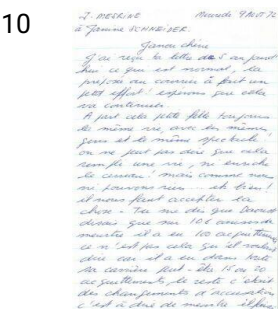 10
J. MESRINE Mercredi 9 Aout 72
à Janine SCHNEIDER.
Janou chérie
J'ai reçu ta lettre du 5 au jour
hui ce qui est normal, la
 au courrier a fait un
petit effort! espérons que cela
va continuer.
A part cela petite fille toujours
la même vie, avec les mêmes
gens et le même spectacle
on ne peut pas dire que cela
remplit une vie, ni enrichi
le cerveau! mais comme nous
ne pouvons rien ... eh bien!
il nous faut accepter la
chose - Tu me dis que
disais que sur 102 accusés de
meurtre il a eu 100 acquittements
ce n'est pas cela qu'il voulait
dire car il a eu dans toute
sa carrière peut-être 15 ou 20
acquittements, le reste c'était
des changements d'accusation
c'est à dire de meurtre il